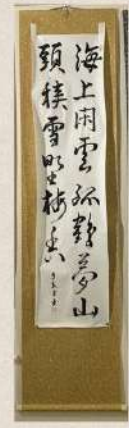 海上閑雲孤鶴夢山
頭積雪照梅香